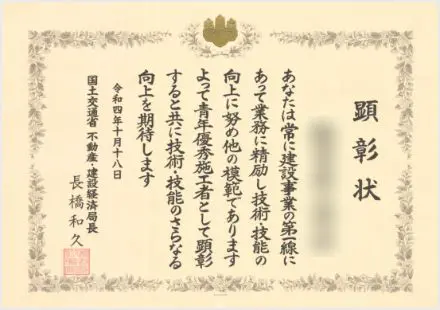 顕彰状
あなたは常に建設事業の第一線に
あって業務に精励し技術・技能の
向上に努め他の模範であります
よって青年優秀施工者として顕彰
すると共に技術・技能のさらなる
向上を期待します
令和四年十月十八日
国土交通省 不動産・建設経済局長
長橋和久